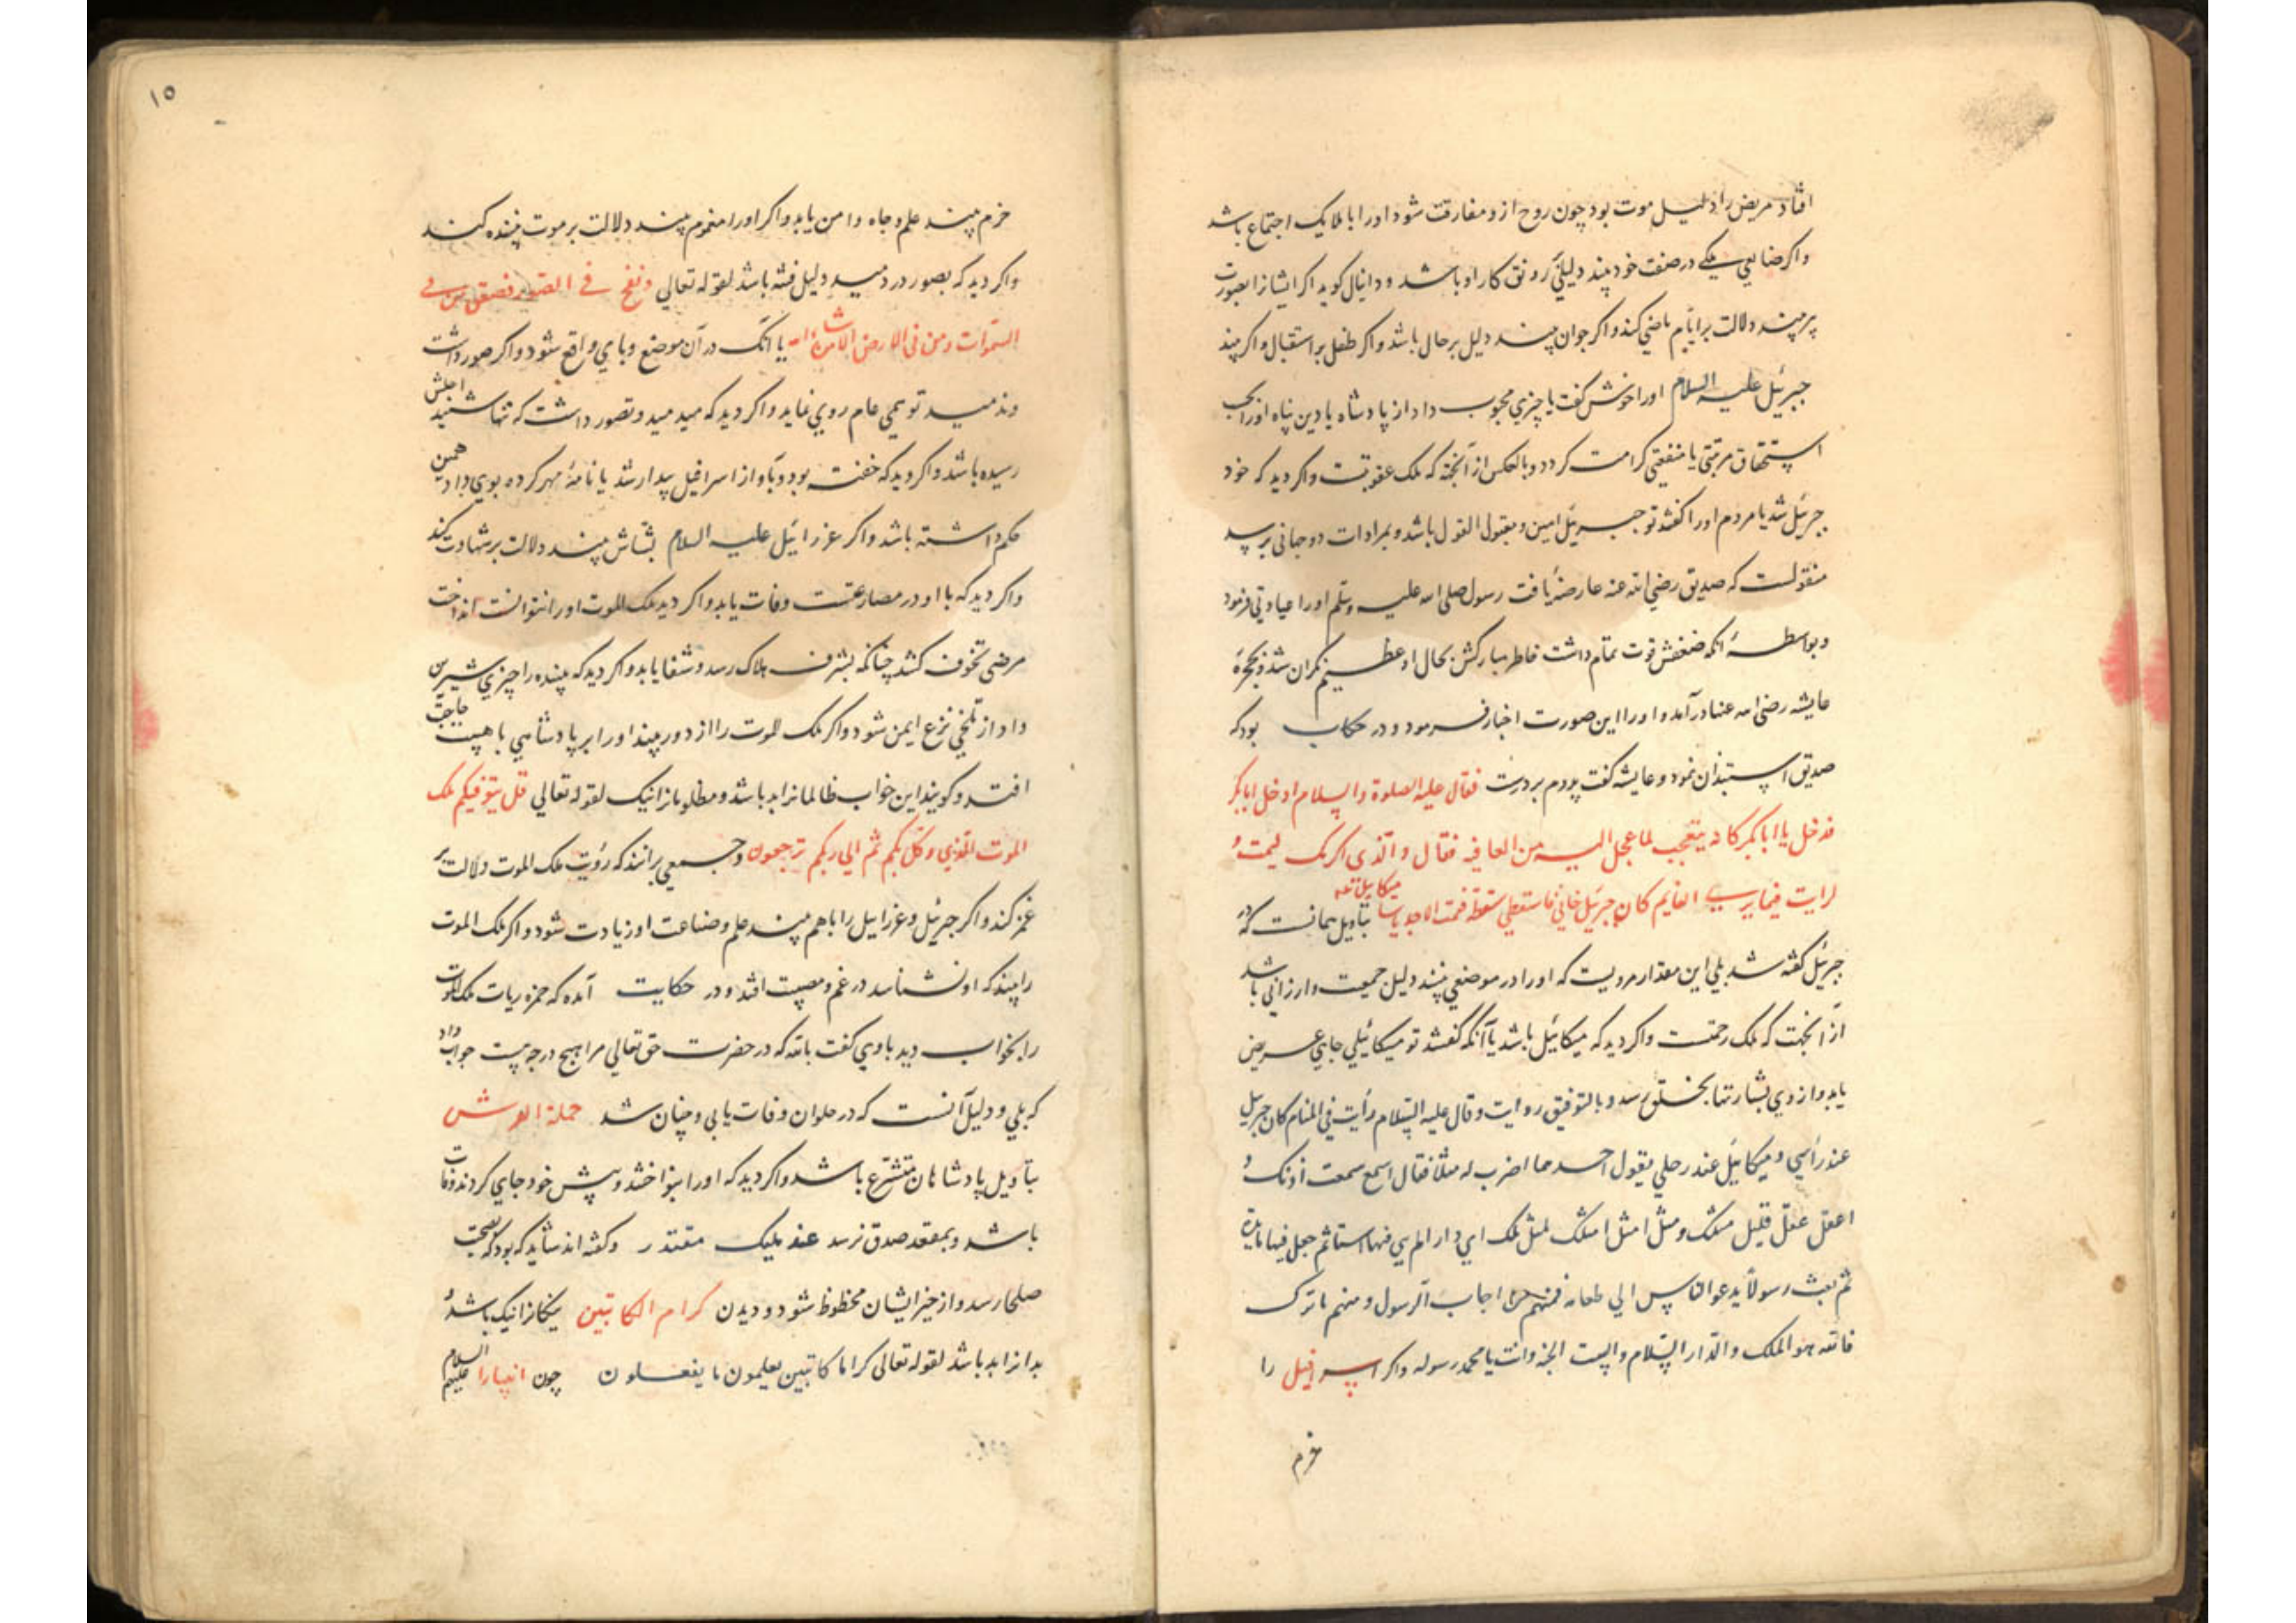 افتاد مریض را دلیل موت بود چون روح ازو مفارقت شود اورا با ملایک اجتماع باشد
واکر صانعی یکی در صنعت خود بیند دلیلی رونق کار او باشد و دانیال کوید اکر ایشانرا بصورت
پیر بیند دلالت بر ایام ماضی کند واکر جوان بیند دلیل بر حال باشد واکر طفل بر استقبال واکر بیند
جبرئیل علیه السلام اورا خوش کفت یا چیزی محبوب داد از پادشاه یا دین پناه اورا بحسب
استحقاق مرتبتی یا منفعتی کرامت کردد وبالعکس از آنجهة که ملک عقوبتست واکر دید که خود
جبرئیل شد یا مردم اورا کفتند تو جبرئیل امین ومقبول القول باشد وبمرادات دوجهانی برسد
منقولست که صدیق رضی الله عنه عارضهٔ یافت رسول صلی الله علیه وسلم اورا عیادتی فرمود
وبواسطهٔ آنکه ضعفش قوت تمام داشت خاطر مبارکش بحال او عظیم نکران شد و بحجرهٔ
عایشه رضی الله عنها در آمد واورا این صورت اخبار فرمود ودر حکایت بود که
صدیق استیذان نمود وعایشه کفت پدرم بر درست فقال علیه الصلوة والسلام ادخل ابا بکر
فدخل یا ابا بکر کانه یتعجب لما عجل الیه من العافیه فقال والذی اکرمک لیمت و
لرایت فیما یری النایم کان جبرئیل میکائیل تعه خانی فاستعطی سعطة فقمت بتاویل همانست که در
جبرئیل کفته شد بلی این مقدار مرویست که اورا در موضعی بینند دلیل جمعیت وارزانی باشد
از آنجهت که ملک رحمتست واکر دید که میکائیل باشد یا آنکه کفتند تو میکائیلی جاهی عریض
یابد وازوی بشارتها بخلق رسد وبالتوفیق روایت وقال علیه السلام رأیت فی المنام کان جبریل
عند رأسی ومیکائیل عند رجلی یقول احدهما اضرب له مثلا فقال اسمع سمعت اذنک و
اعقل عقل قلبک مثلک ومثل امثل امتک کمثل ملک ای دارا لم یبن فیها بیتا ثم جعل فیها مایدة
ثم بعث رسولاً یدعو الناس الی طعامه فمنهم من اجاب الرسول ومنهم ما ترک
فالله هو الملک والدار السلام والبیت الجنه وانت یا محمد رسوله واکر اسرافیل را
خرم
۱۵
خرم بیند علم وجاه وامن یابد واکر اورا مغموم بیند دلالت بر موت بیننده کند
واکر دید که بصور در دمید دلیل فتنه باشد لقوله تعالی ونفخ فی الصور فصعق من فی
السموات ومن فی الارض الا من شاء الله یا آنک در آن موضع وبایی واقع شود واکر صور داشت
وندمید تو همی عام روی نماید واکر دید که میدمید وتصور داشت که تنها شنید اجلش
رسیده باشد واکر دید که خفته بود وبآواز اسرافیل بیدار شد یا نامهٔ مهر کرده بوی داد همین
حکم داشته باشد واکر عزرائیل علیه السلام بشاش بیند دلالت بر شهادت کند
واکر دید که با او در مصارعتست وفات یابد واکر دید ملک الموت اورا نتوانست انداخت
مرضی تخوف کشد چنانکه بشرف هلاک رسد وشفا یابد واکر دید که بیننده را چیزی شیرین
داد از تلخی نزع ایمن شود واکر ملک الموت را از دور بیند اورا بر پادشاهی با هیبت حاجت
افتد وکویند این خواب ظالمانرا بد باشد ومظلومانرا نیک لقوله تعالی قل یتوفیکم ملک
الموت الذی وکل بکم ثم الی ربکم ترجعون وجمعی برانند که رؤیت ملک الموت دلالت بر
غمز کند واکر جبرئیل وعزراییل را باهم بیند علم وصناعت او زیادت شود واکر ملک الموت
را بیند که او نشناسد در غم ومصیبت افتد ودر حکایت آمده که حمزه زیات ملک الموت
را بخواب دید باوی کفت بالله که در حضرت حق تعالی مرا هیچ درجه هست جواب داد
که بلی ودلیل آنست که در حلوان وفات یابی وچنان شد حملة العرش
بتاویل پادشاهان متشرع باشد واکر دید که اورا بنواختند وپیش خود جای کردند وفات
باشد وبمقعد صدق نرسد عند ملیک مقتدر وکفته اند شاید که بود که بصحبت
صلحا رسد واز خیر ایشان محظوظ شود ودیدن کرام الکاتبین نیکانرا نیک باشد و
بدانرا بد باشد لقوله تعالی کراما کاتبین یعلمون ما یفعلون چون انبیارا علیهم السلام